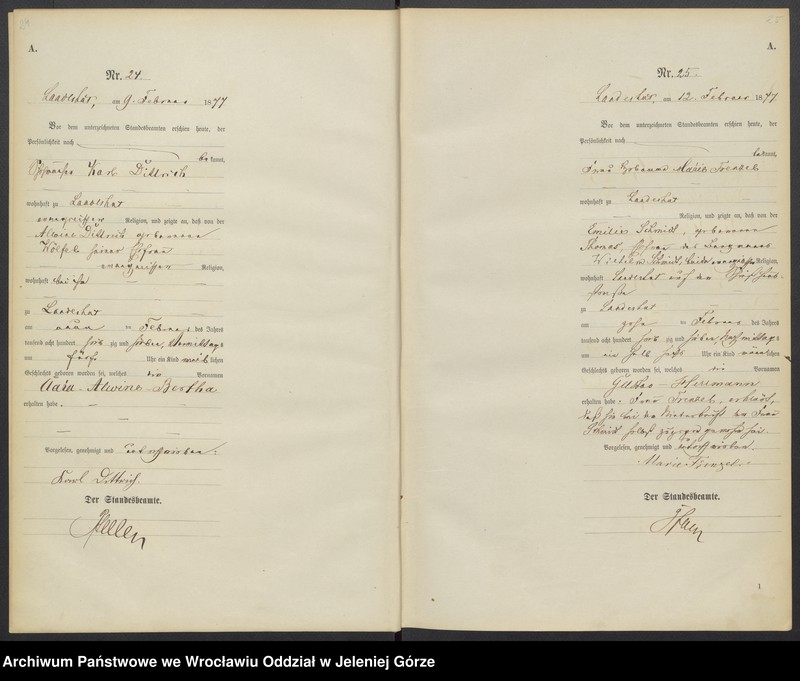 24
A.
Nr. 24.
Landeshut, am 9. Februar 1877
Vor dem unterzeichneten Standesbeamten erschien heute, der
Persönlichkeit nach
bekannt,
Karl Dittrich
wohnhaft zu Landeshut
evangelischer Religion, und zeigte an, daß von der
Alwine Dittrich geborenen
Wölfel seiner Ehefrau
evangelischen Religion,
wohnhaft bei ihm
zu Landeshut
am neun ten Februar des Jahres
tausend acht hundert sieb zig und sieben, Vormittags
um fünf Uhr ein Kind weib lichen
Geschlechts geboren worden sei, welches die Vornamen
Alwine Bertha
erhalten habe.
Vorgelesen, genehmigt und unterschrieben:
Karl Dittrich
Der Standesbeamte.
25
A.
Nr. 25.
Landeshut, am 12. Februar 1877
Vor dem unterzeichneten Standesbeamten erschien heute, der
Persönlichkeit nach
bekannt,
Frau Marie
wohnhaft zu Landeshut
Religion, und zeigte an, daß von der
Emilie Schmidt, geborenen
Thomas, Ehefrau des Bergmanns
Wilhelm Schmidt, beide Religion,
wohnhaft Landeshut auf der
straße
zu Landeshut
am zehn ten Februar des Jahres
tausend acht hundert sieb zig und sieben, Nachmittags
um ein halb sechs Uhr ein Kind männlichen
Geschlechts geboren worden sei, welches die Vornamen
Gustav Herrmann
erhalten habe. Frau erklärt,
daß sie bei der Niederkunft der Frau
Schmidt selbst zugegen gewesen sei.
Vorgelesen, genehmigt und unterschrieben.
Marie
Der Standesbeamte.
1
Archiwum Państwowe we Wrocławiu Oddział w Jeleniej Górze